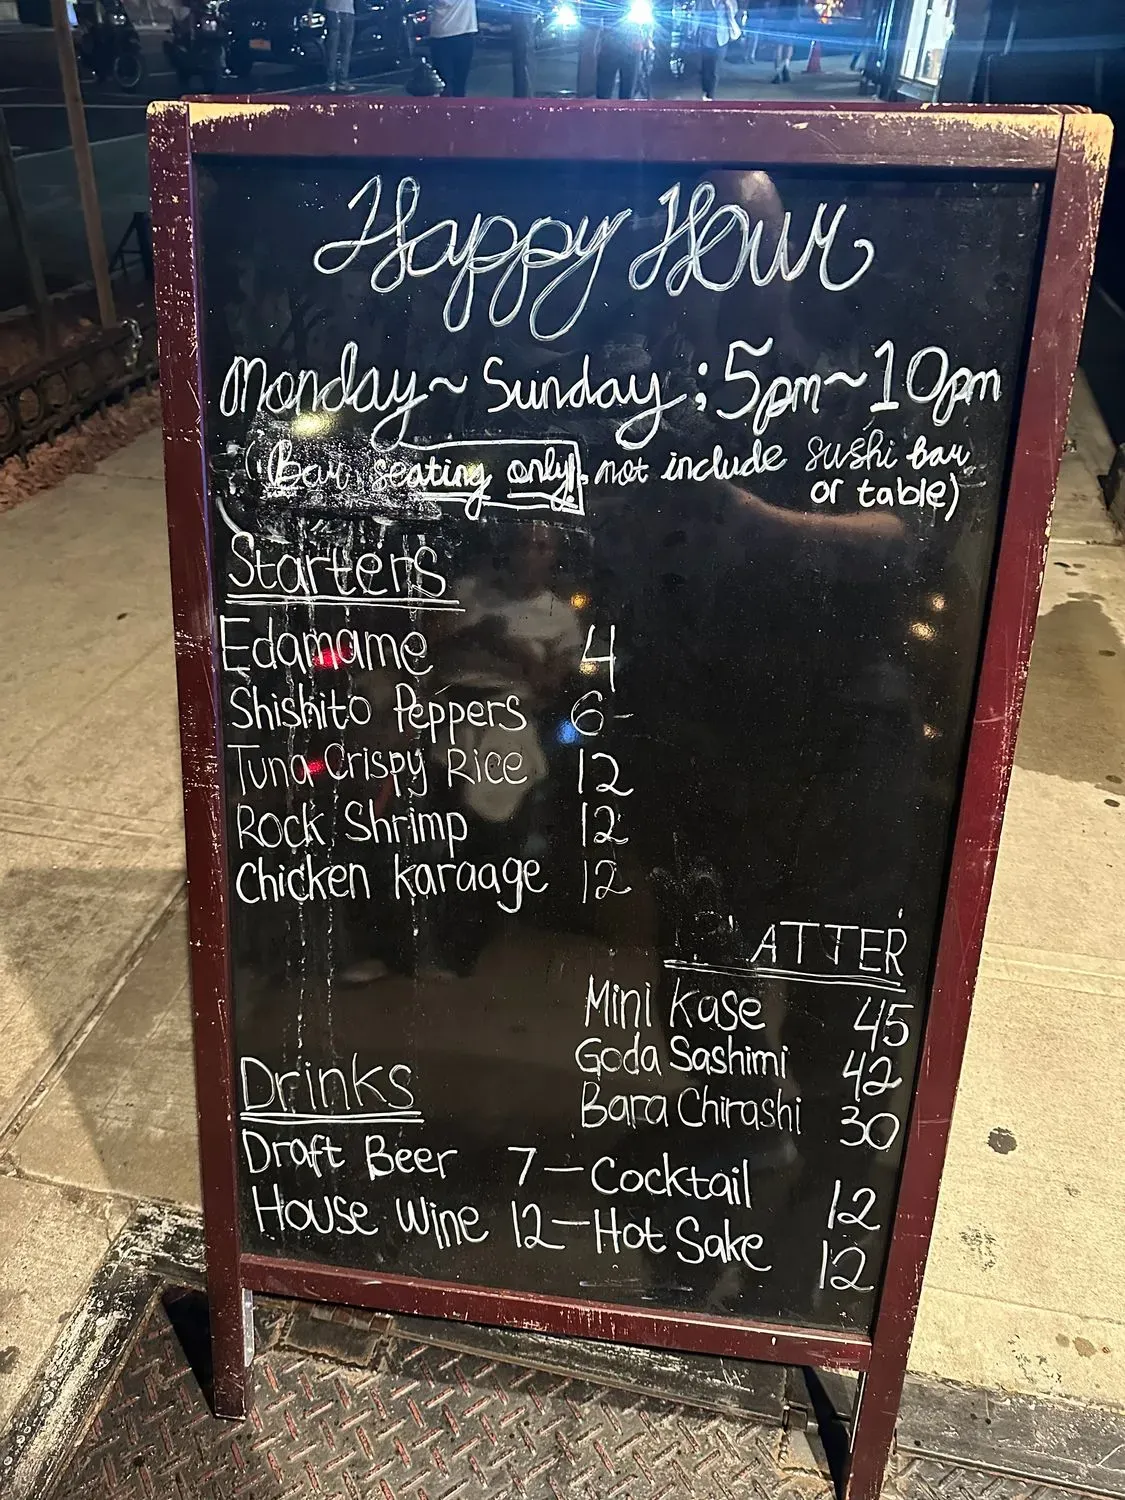 Happy Hour
Monday~Sunday ; 5pm~10pm
(Bar seating only!, not include sushi bar
or table)
Starters
Edamame 4
Shishito Peppers 6-
Tuna Crispy Rice 12
Rock Shrimp 12
Chicken karaage 12
ATTER
Mini Kase 45
Goda Sashimi 42
Bara Chirashi 30
Drinks
Draft Beer 7—Cocktail 12
House Wine 12—Hot Sake 12